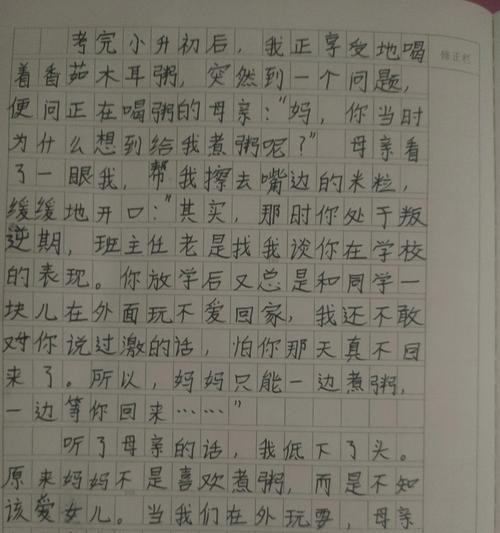 考完小升初后，我正享受地喝
修正栏
着香茹木耳粥，突然到一个问题，
便问正在喝粥的母亲："妈，你当时
为什么想到给我煮粥呢？"母亲看
了一眼我，帮我擦去嘴边的米粒，
缓缓地开口："其买，那时你处于叛
逆期，班主任老是找我谈你在学校
的表现。你放学后又总是和同学一
块儿在外面玩不爱回家，我还不敢
对你说过激的话，怕你那天真不回
来了。所以，妈妈只能一边煮粥，
一边等你回来……"
听了母亲的话，我低下了头。
原来妈妈不是喜欢煮粥，而是不知
该爱女儿。当我们在外玩耍，母亲